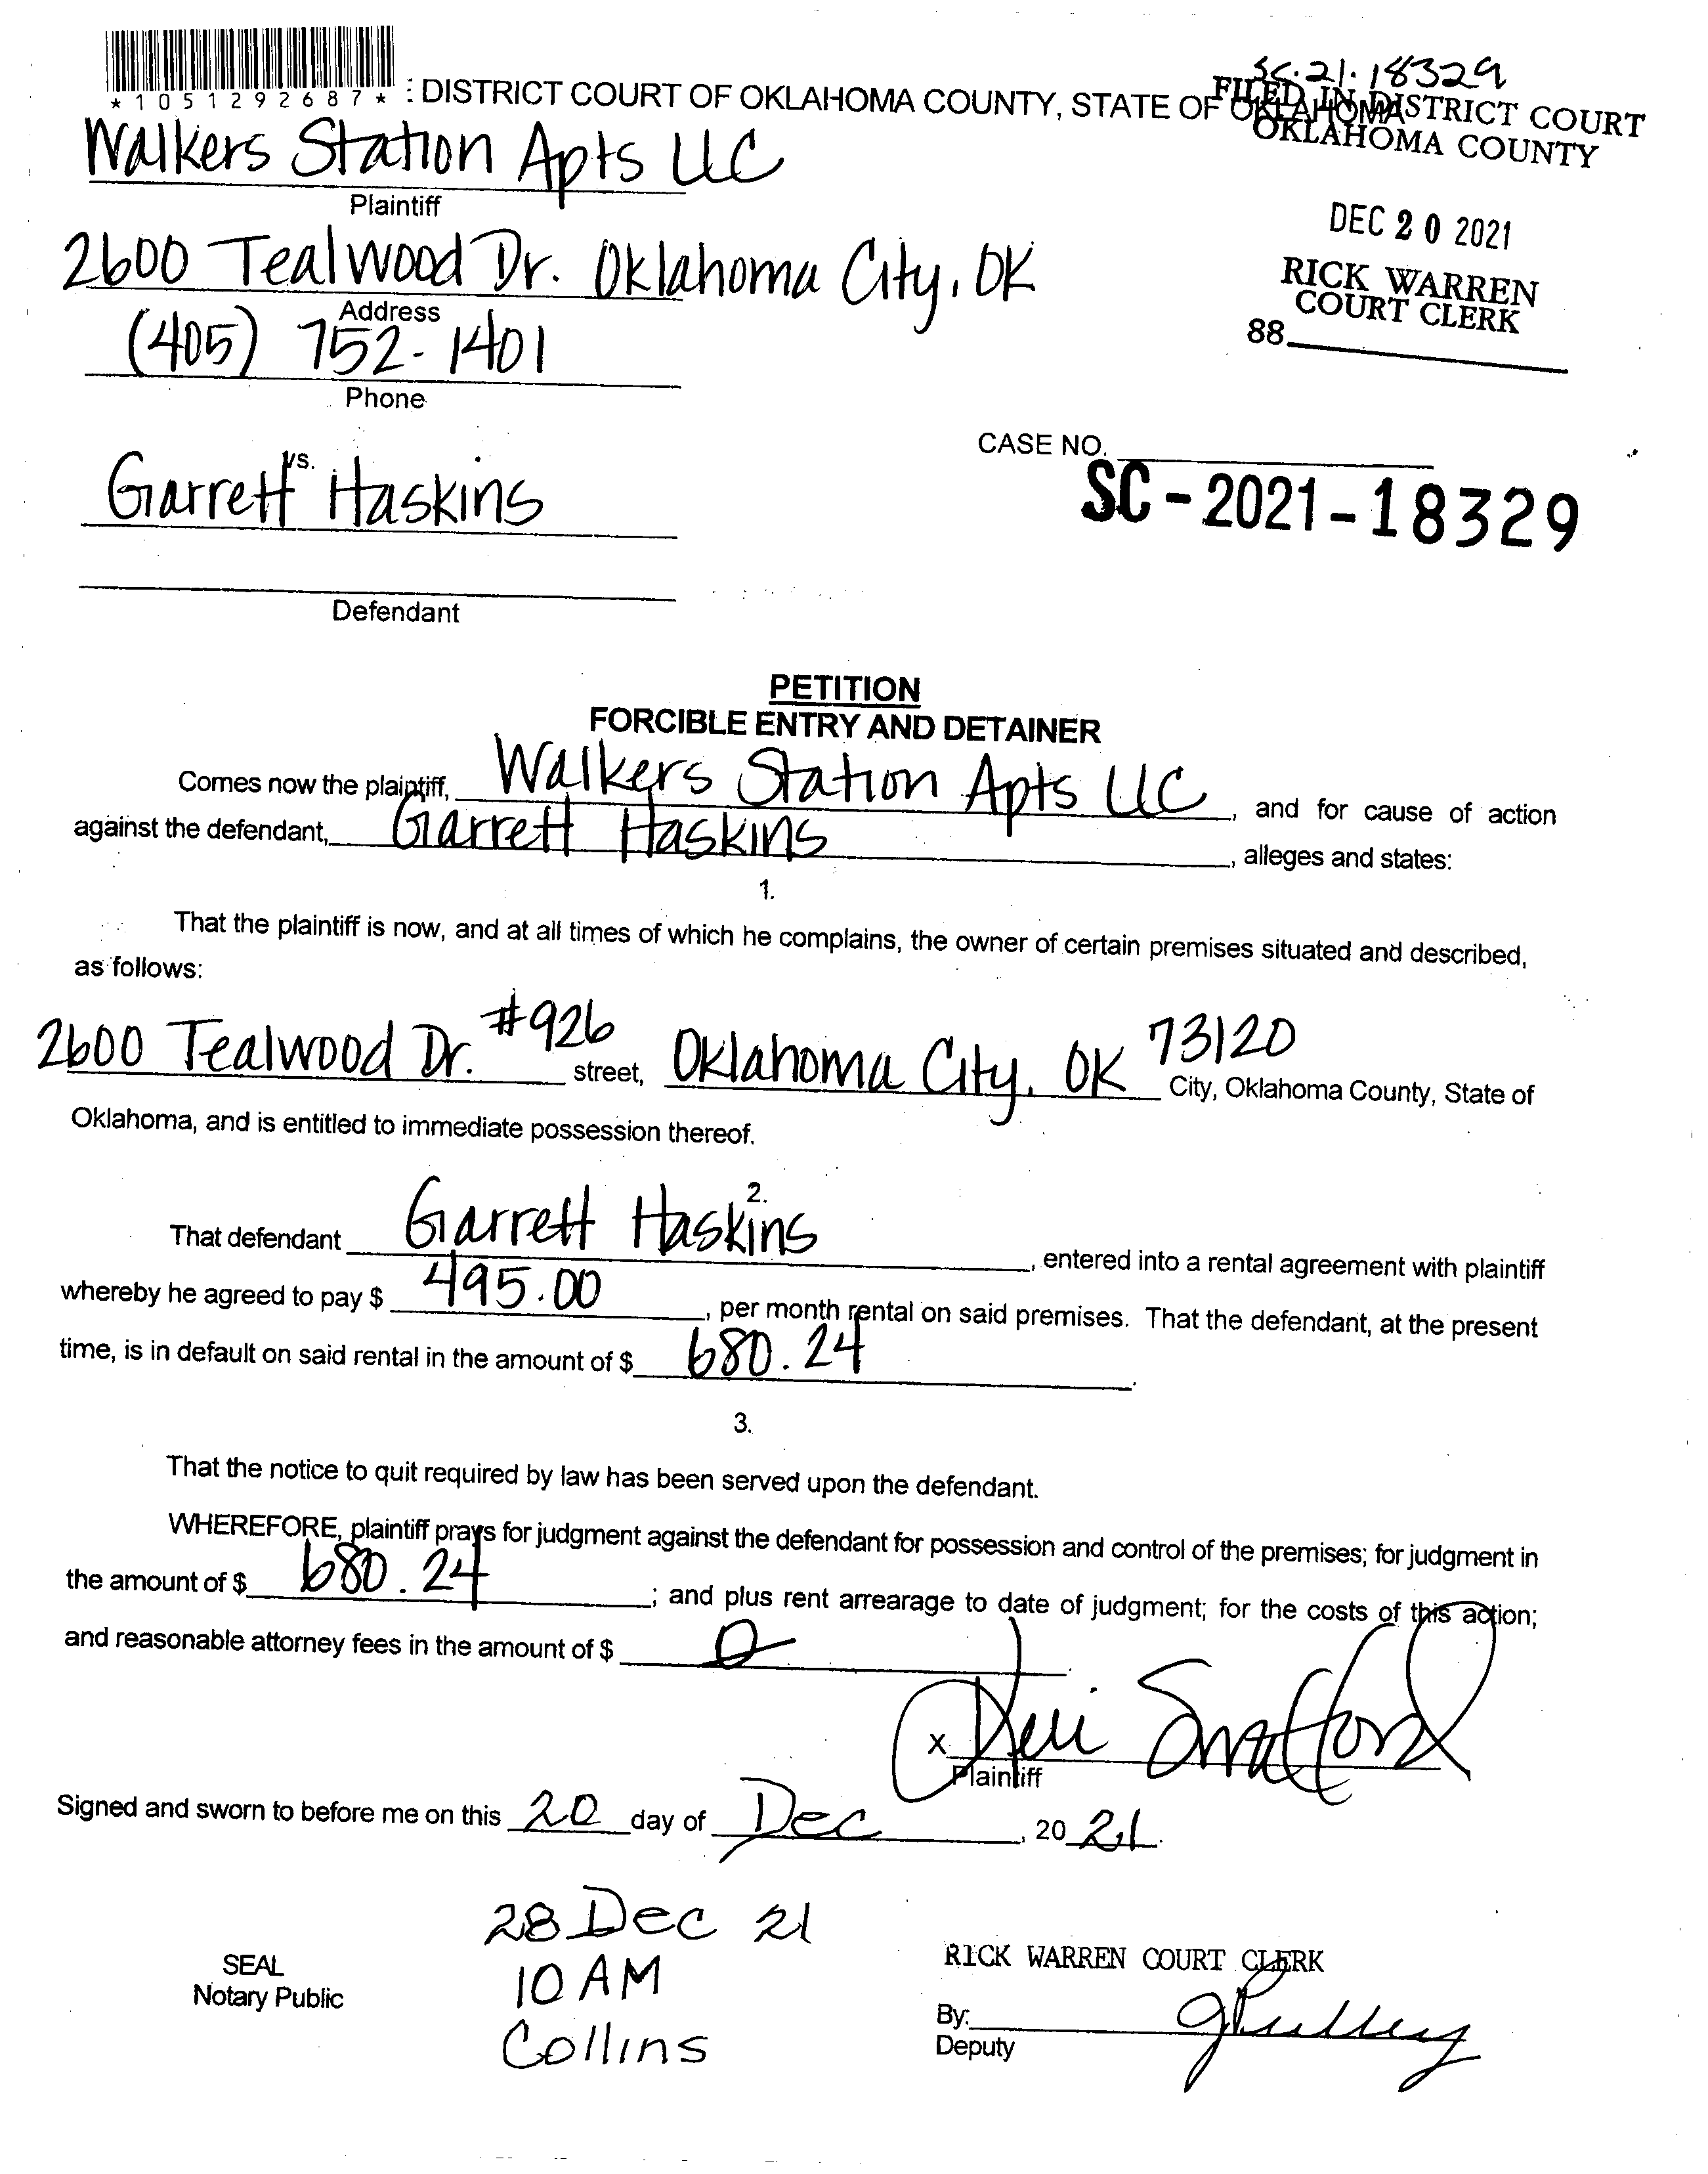 SC.21.18329
*1051292687* : DISTRICT COURT OF OKLAHOMA COUNTY, STATE OF OKLAHOMA
FILED IN DISTRICT COURT
OKLAHOMA COUNTY
Walkers Station Apts LLC
Plaintiff
DEC 20 2021
2600 Tealwood Dr. Oklahoma City, OK
Address
RICK WARREN
COURT CLERK
88
(405) 752-1401
Phone
CASE NO.
SC-2021-18329
vs.
Garrett Haskins
Defendant
PETITION
FORCIBLE ENTRY AND DETAINER
Comes now the plaintiff, Walkers Station Apts LLC, and for cause of action
against the defendant, Garrett Haskins, alleges and states:
1.
That the plaintiff is now, and at all times of which he complains, the owner of certain premises situated and described,
as follows:
2600 Tealwood Dr. #926 street, Oklahoma City, OK 73120 City, Oklahoma County, State of
Oklahoma, and is entitled to immediate possession thereof.
2.
That defendant Garrett Haskins, entered into a rental agreement with plaintiff
whereby he agreed to pay $ 495.00, per month rental on said premises. That the defendant, at the present
time, is in default on said rental in the amount of $ 680.24.
3.
That the notice to quit required by law has been served upon the defendant.
WHEREFORE, plaintiff prays for judgment against the defendant for possession and control of the premises; for judgment in
the amount of $ 680.24; and plus rent arrearage to date of judgment; for the costs of this action;
and reasonable attorney fees in the amount of $ 0
X
Plaintiff
Signed and sworn to before me on this 20 day of Dec, 20 21.
28 Dec 21
10 AM
Collins
SEAL
Notary Public
RICK WARREN COURT CLERK
By:
Deputy